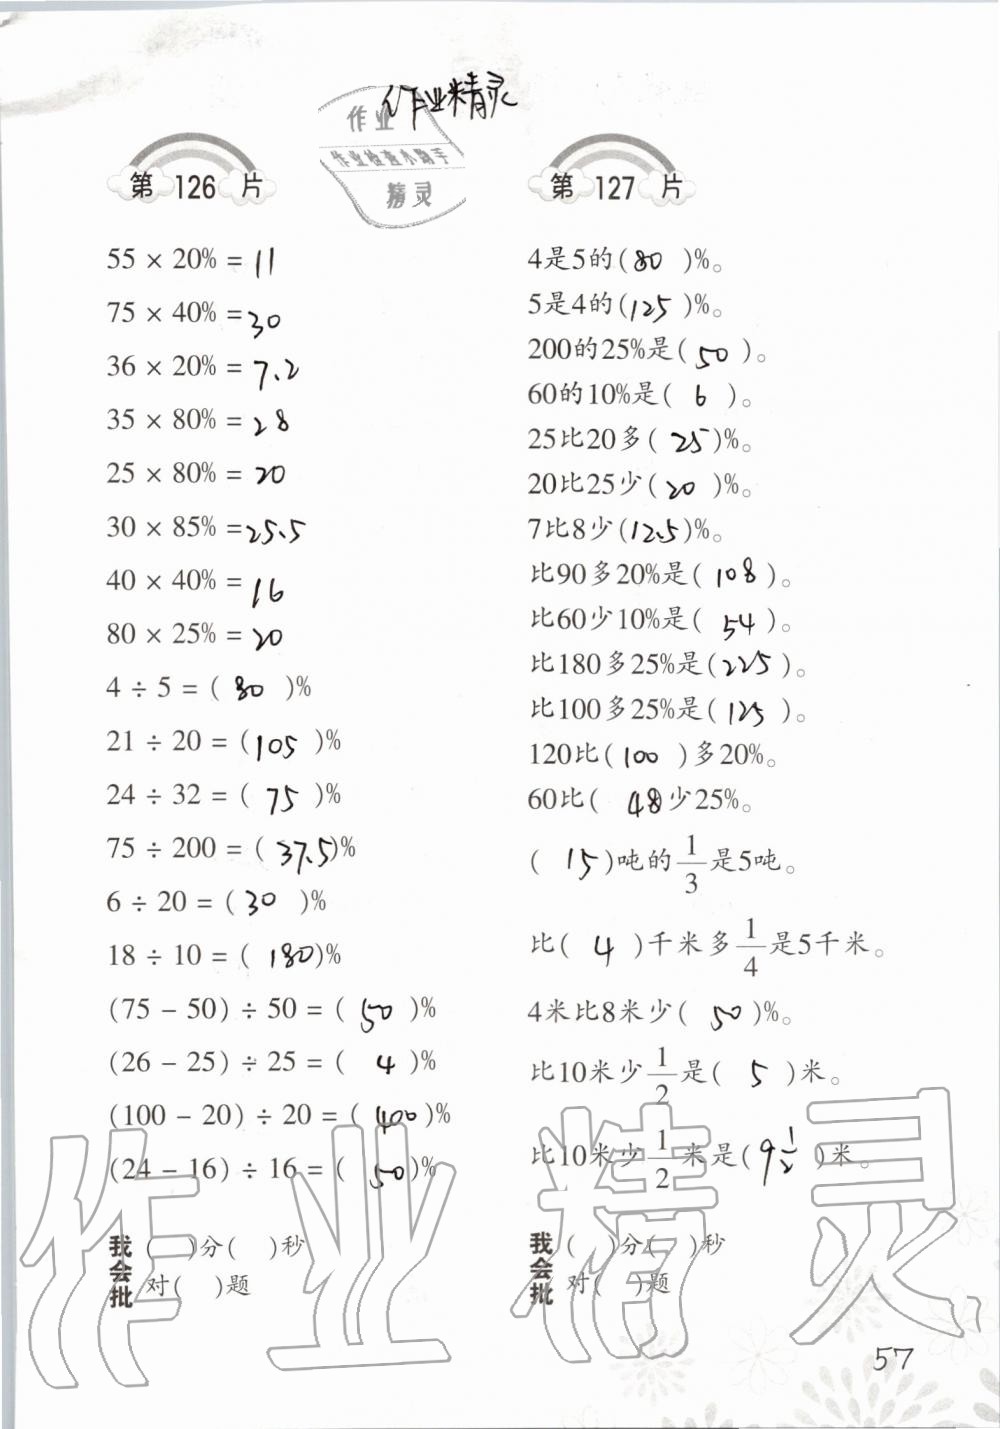 作业精灵
作业
作业检查小助手
精灵
第 126 片
55 × 20% = 11
75 × 40% = 30
36 × 20% = 7.2
35 × 80% = 28
25 × 80% = 20
30 × 85% = 25.5
40 × 40% = 16
80 × 25% = 20
4 ÷ 5 = ( 80 )%
21 ÷ 20 = ( 105 )%
24 ÷ 32 = ( 75 )%
75 ÷ 200 = ( 37.5 )%
6 ÷ 20 = ( 30 )%
18 ÷ 10 = ( 180 )%
(75 − 50) ÷ 50 = ( 50 )%
(26 − 25) ÷ 25 = ( 4 )%
(100 − 20) ÷ 20 = ( 400 )%
(24 − 16) ÷ 16 = ( 50 )%
我会批 ( )分( )秒
对( )题
第 127 片
4是5的( 80 )%。
5是4的( 125 )%。
200的25%是( 50 )。
60的10%是( 6 )。
25比20多( 25 )%。
20比25少( 20 )%。
7比8少( 12.5 )%。
比90多20%是( 108 )。
比60少10%是( 54 )。
比180多25%是( 225 )。
比100多25%是( 125 )。
120比( 100 )多20%。
60比( 48 少25%。
( 15 )吨的1/3是5吨。
比( 4 )千米多1/4是5千米。
4米比8米少( 50 )%。
比10米少1/2是( 5 )米。
比10米少1/2米是( 9 1/2 )米。
我会批 ( )分( )秒
对( )题
作业精灵
57